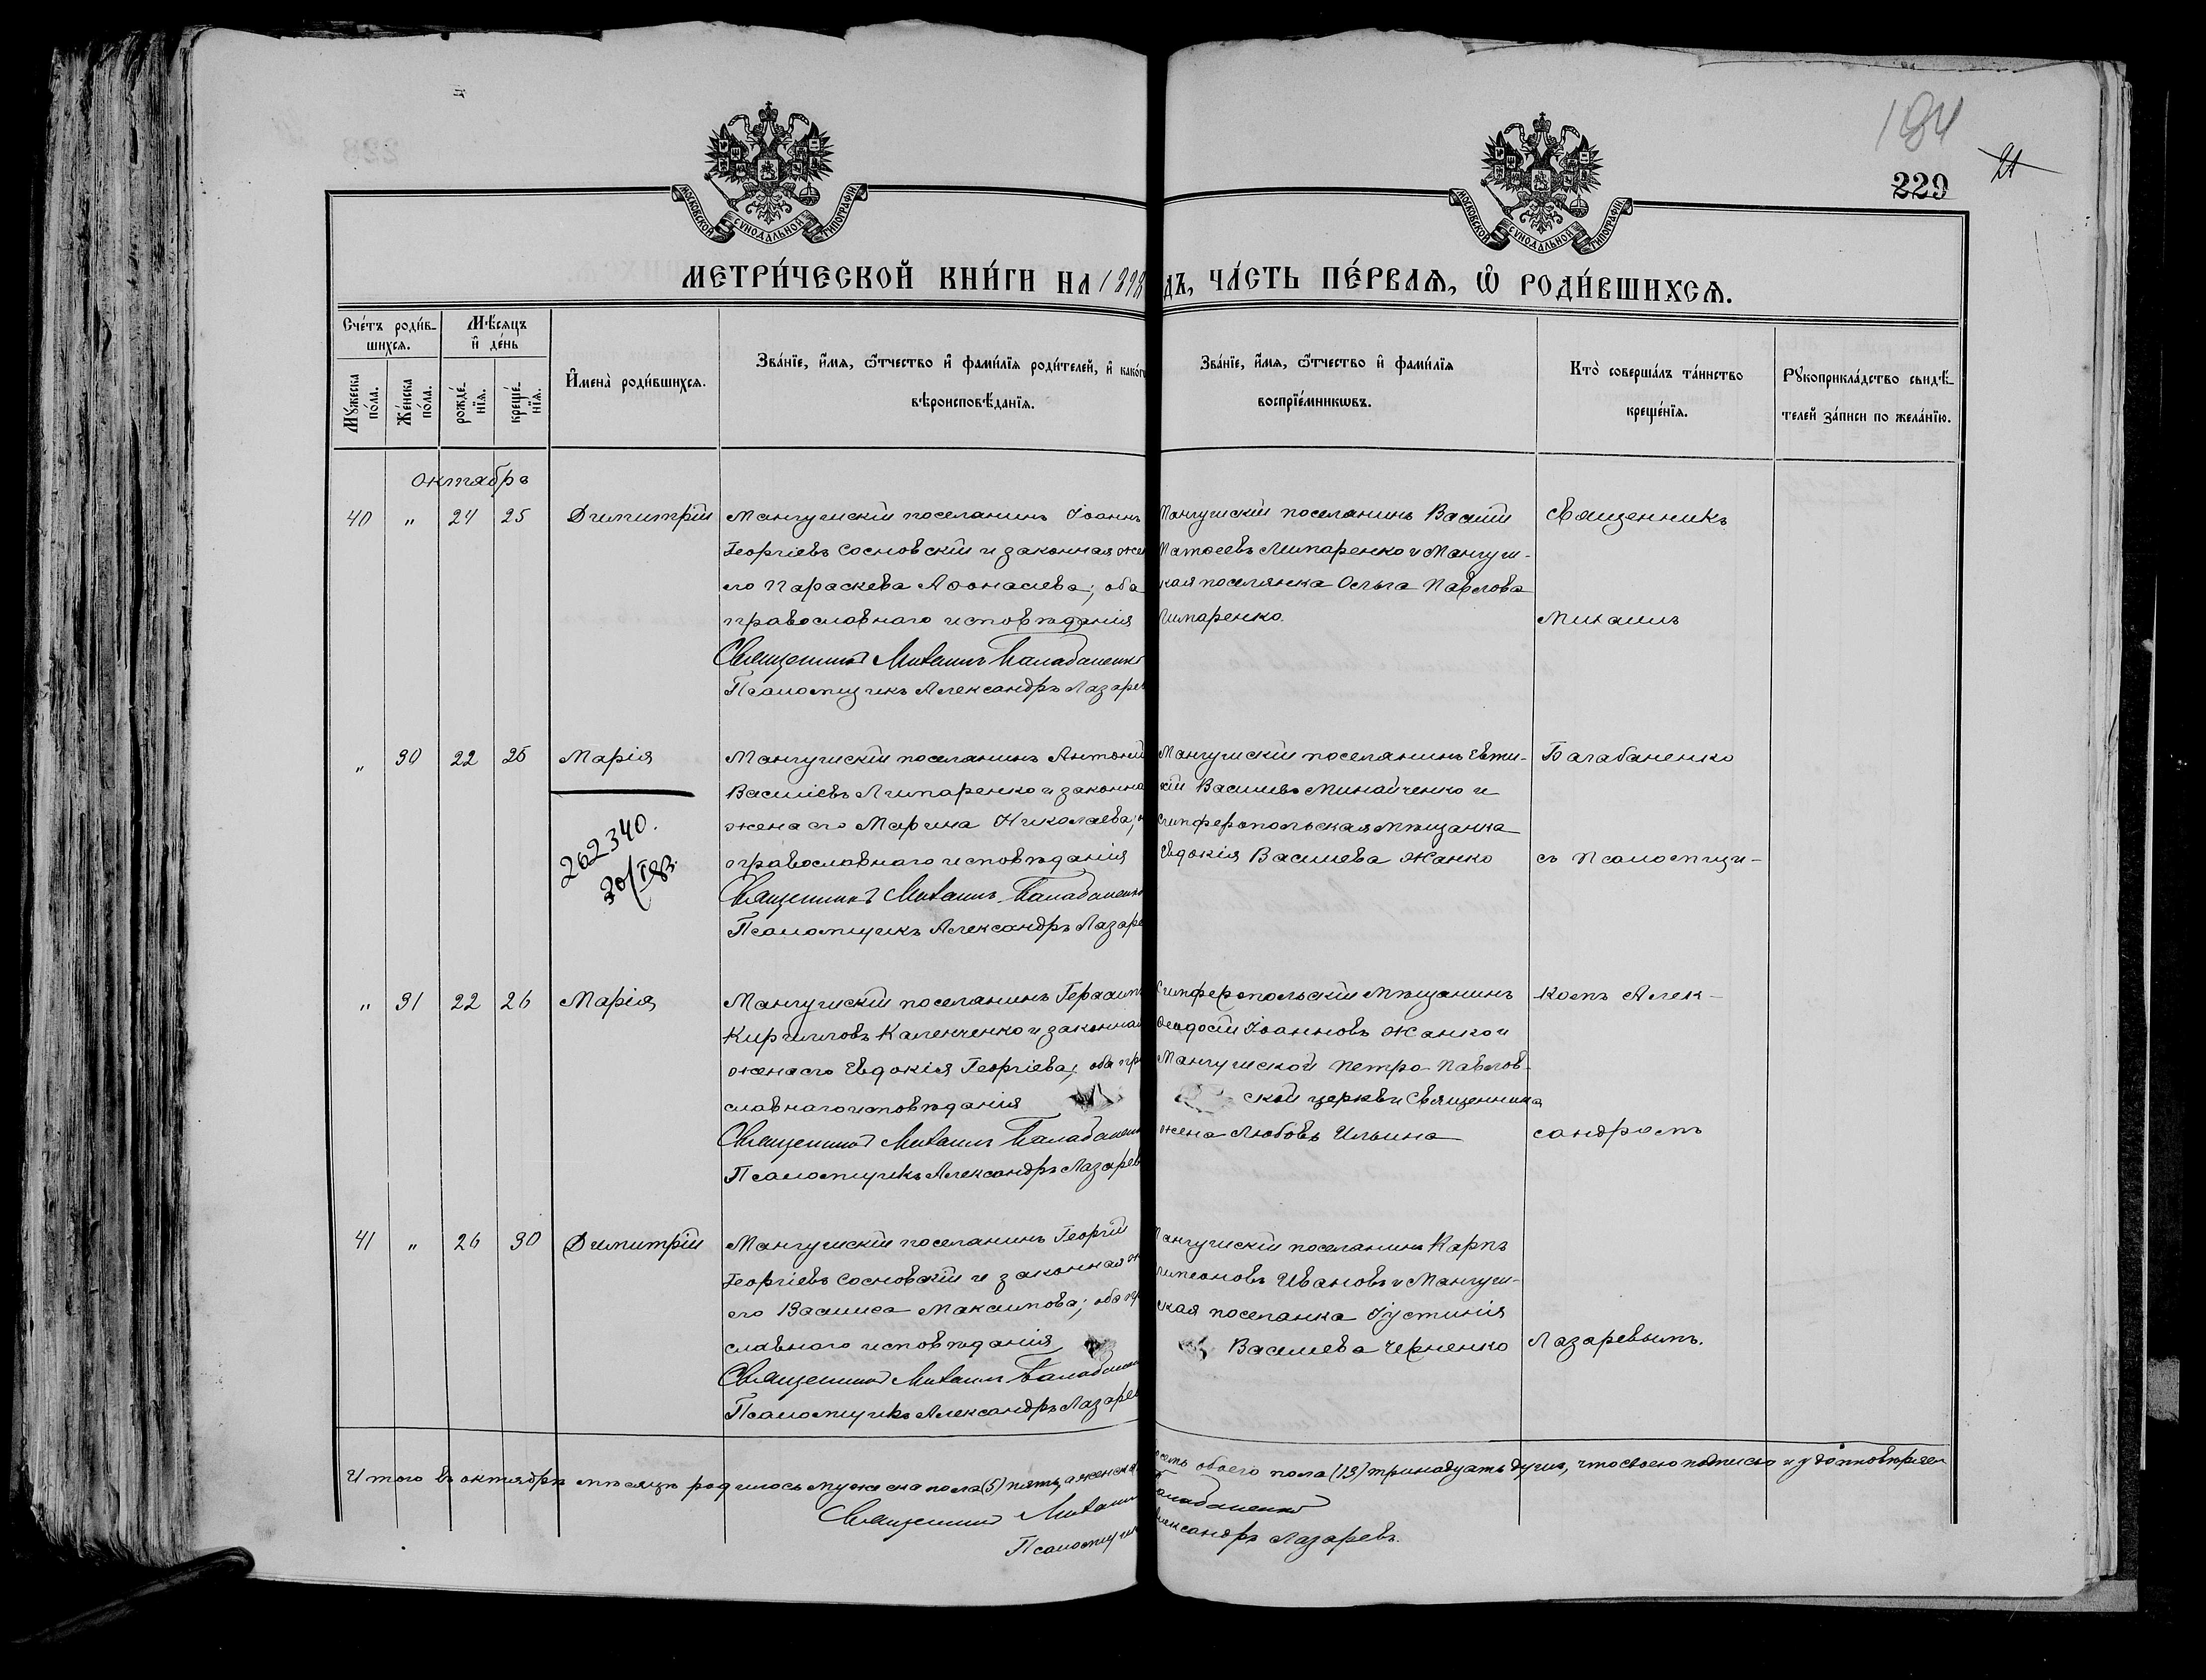 194
229
21
МОСКОВСКОЙ СѴНОДАЛЬНОЙ ТИПОГРАФІИ
МОСКОВСКОЙ СѴНОДАЛЬНОЙ ТИПОГРАФІИ
МЕТРИ́ЧЕСКОЙ КНИ́ГИ НА 1898
ДЪ, ЧА́СТЬ ПЕ́РВАѦ, Ѡ҆ РОДИ́ВШИХСѦ.
Сче́тъ роди́в-
шихсѧ.
Мѣ́сѧцъ
и҆ де́нь
Мꙋ́жеска по́ла.
Же́нска по́ла.
рожде́-
нїѧ.
креще́-
нїѧ.
И҆мена̀ роди́вшихсѧ.
Зва́нїе, и҆́мѧ, ѻ҆́тчество и҆ фами́лїѧ роди́телей, и҆ како́г
вѣроисповѣ́данїѧ.
Зва́нїе, и҆́мѧ, ѻ҆́тчество и҆ фами́лїѧ
воспрїе́мникѡвъ.
Кто̀ соверша́лъ та́инство
креще́нїѧ.
Рꙋкоприкла́дство свидѣ́-
телей за́писи по жела́нїю.
октябрь
40 " 24 25 Димитрій
Мангушскій поселянинъ Іоаннъ
Георгіевъ Сосновскій и законная жен
его Параскева Аѳонасіева; оба
православнаго исповѣданія
Священникъ Михаилъ Балабаненко
Псаломщикъ Александръ Лазарев
Мангушскій поселянинъ Василій
Матѳеевъ Липаренко и Мангуш-
кая поселянка Ольга Павлова
Липаренко.
Священникъ
Михаилъ
" 30 22 25 Марія
262340.
Мангушскій поселянинъ Антоній
Василіевъ Липаренко и законна
жена его Марина Николаева;
православнаго исповѣданія
Священникъ Михаилъ Балабаненко
Псаломщикъ Александръ Лазаре
Мангушскій поселянинъ Евти-
хій Василіевъ Минайченко и
Симферопольская мѣщанка
Евдокія Василіева Жанко
Балабаненко
съ Псаломщи-
" 31 22 26 Марія
Мангушскій поселянинъ Герасим
Кирилловъ Каленченко и законная
жена его Евдокія Георгіева; оба пра
славнаго исповѣданія
Священникъ Михаилъ Балабаненк
Псаломщикъ Александръ Лазарев
Симферопольскій мѣщанинъ
Ѳеодосій Іоанновъ Жанко и
Мангушской Петро-Павлов-
ской церкви Священника
жена Любовь Ильина
комъ Алек-
сандромъ
41 " 26 30 Димитрій
Мангушскій поселянинъ Георгій
Георгіевъ Сосновскій и законная ж
его Василиса Максимова; оба пра
славнаго исповѣданія
Священникъ Михаилъ Балабанен
Псаломщикъ Александръ Лазарев
Мангушскій поселянинъ Карпъ
Симеоновъ Ивановъ и Мангуш-
ская поселянка Іустинія
Василіева Черненко
Лазаревымъ.
Итого въ октябрѣ мѣсяцѣ родилось мужеска пола (5) пять, а женска
восемь обоего пола (13) тринадцать душъ, что своею подписью и удостовѣряемъ
Священникъ Михаилъ Балабаненко
Псаломщикъ Александръ Лазаревъ.